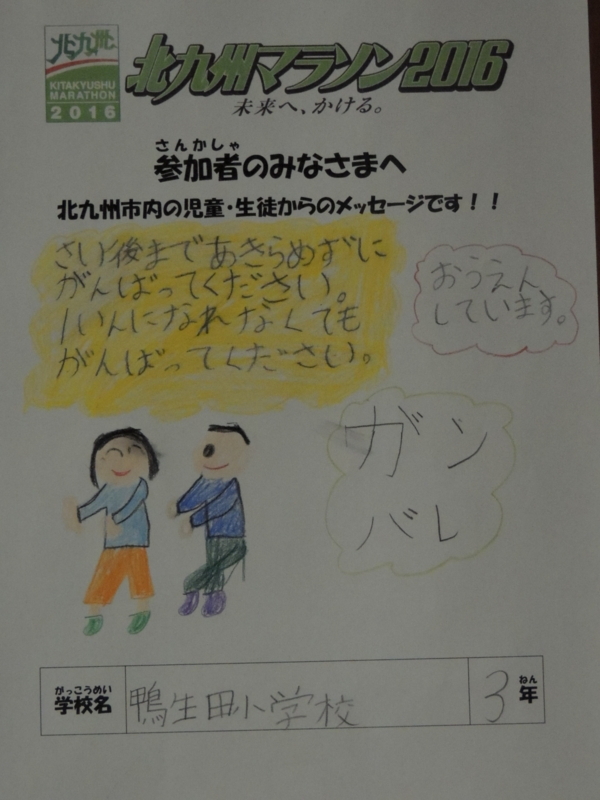 北九州
KITAKYUSHU
MARATHON
2016
北九州マラソン2016
未来へ、かける。
さんかしゃ
参加者のみなさまへ
北九州市内の児童・生徒からのメッセージです！！
さい後まであきらめずに
がんばってください。
1いんになれなくても
がんばってください。
おうえん
しています。
ガン
バレ
がっこうめい
学校名
鴨生田小学校
3
ねん
年